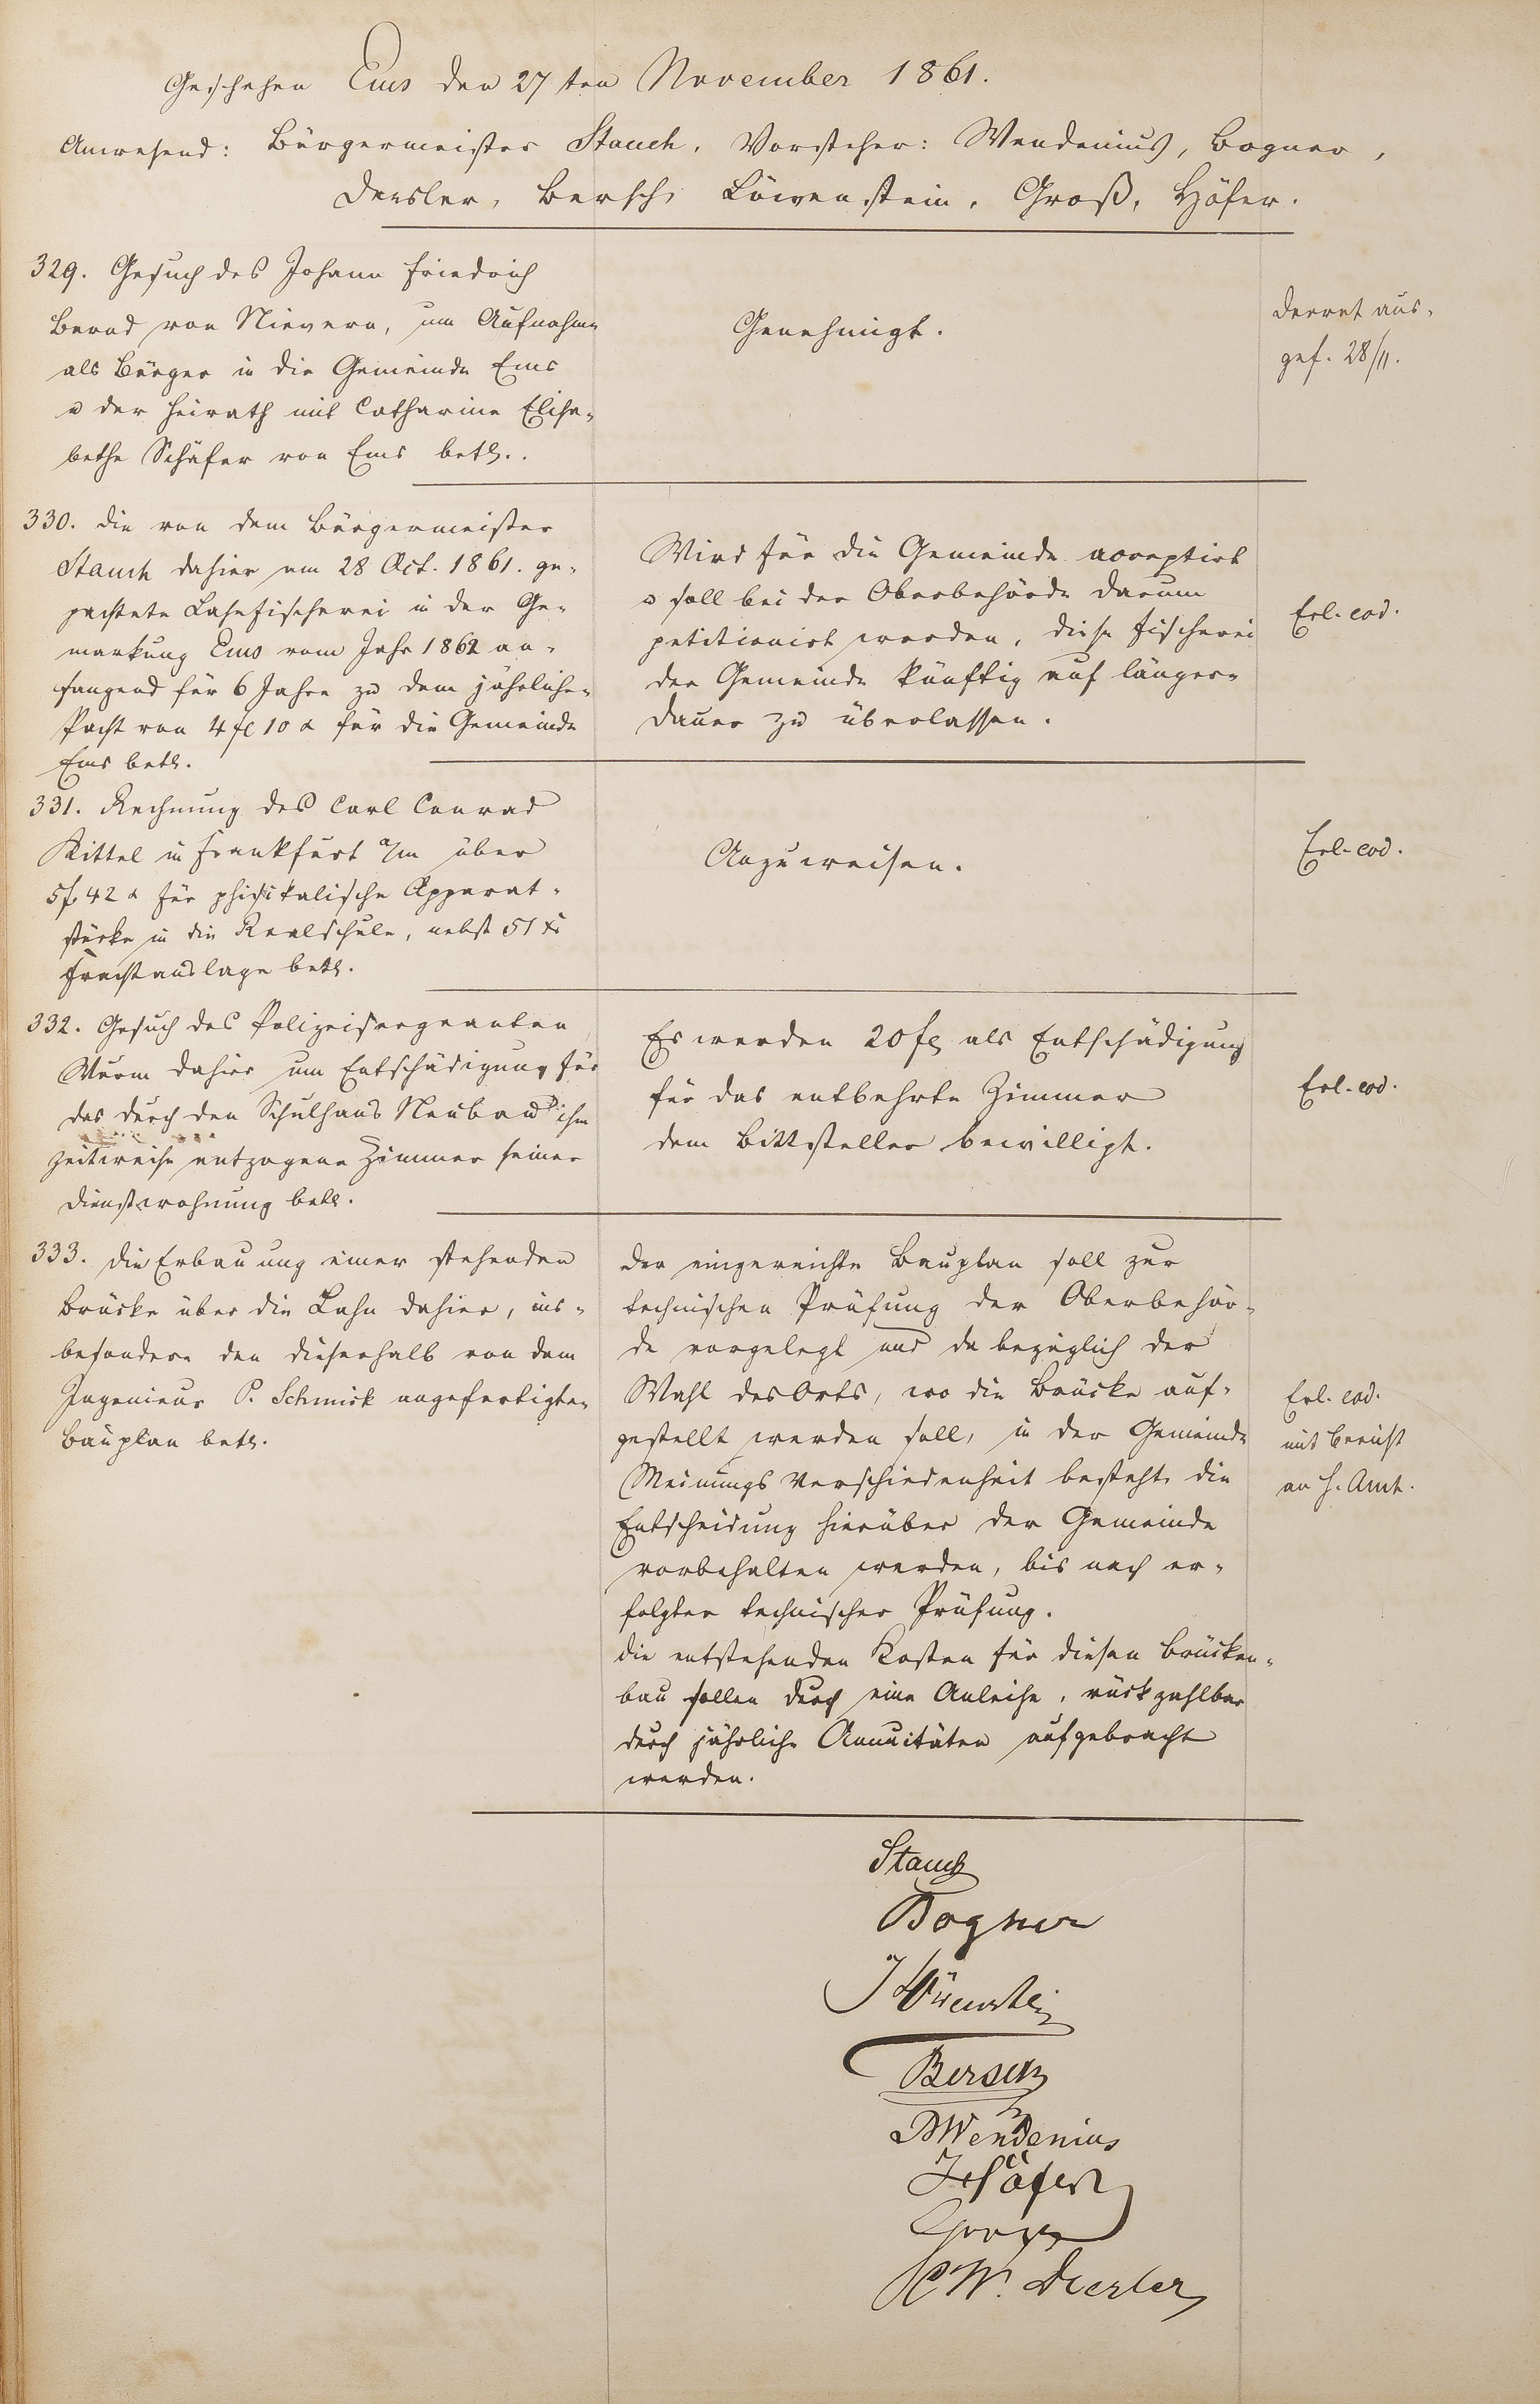 Geschehen Ems den 27ten November 1861.
Anwesend: Bürgermeister Stauch, Vorsteher: Wendenius, Bogner,
Deusler, Bersch, Löwenstein, Groß, Höfer.
329. Gesuch des Johann Friedrich
Bernd von Nievern, um Aufnahme
als Bürger in die Gemeinde Ems
u der Heirath mit Catharine Elisa-
bethe Schäfer von Ems betr.
Genehmigt.
Decret aus-
gef. 28/11.
330. Die von dem Bürgermeister
Stauch dahier am 28 Oct. 1861. ge-
pachtete Lahnfischerei in der Ge-
markung Ems vom Jahr 1862 an-
fangend für 6 Jahre zu dem jährlichen
Pacht von 4 fl 10 x für die Gemeinde
Ems betr.
Wird für die Gemeinde acceptirt
u soll bei der Oberbehörde darum
petitionirt werden, diese Fischerei
der Gemeinde künftig auf längere
Dauer zu überlassen.
Erl. eod.
331. Rechnung des Carl Conrad
Kittel in Frankfurt a/m über
5 f 42 x für phisikalische Apparat-
stücke in die Realschule, nebst 51 xr
Frachtauslage betr.
Anzuweisen.
Erl. eod.
332. Gesuch des Polizeisergeanten
Wurm dahier um Entschädigung für
das durch den Schulhaus Neubau ihm
zeitweise entzogene Zimmer seiner
Dienstwohnung betr.
Es werden 20 fl als Entschädigung
für das entbehrte Zimmer
dem Bittsteller bewilligt.
Erl. eod.
333. Die Erbauung einer stehenden
Brücke über die Lahn dahier, ins-
besondere den dieserhalb von dem
Ingenieur P. Schmick angefertigten
Bauplan betr.
Der eingereichte Bauplan soll zur
technischen Prüfung der Oberbehör-
de vorgelegt und da bezüglich der
Wahl des Orts, wo die Brücke auf-
gestellt werden soll, in der Gemeinde
Meinungs Verschiedenheit besteht die
Entscheidung hierüber der Gemeinde
vorbehalten werden, bis nach er-
folgter technischer Prüfung.
Die entstehenden Kosten für diesen Brücken-
bau sollen durch eine Anleihe, rückzahlbar
durch jährliche Annuitäten aufgebracht
werden.
Erl. eod.
mit Bericht
an H. Amt.
Stauch
Bogner
J Löwenstein
Bersch
Wendenius
Höfer
Gross
W. Deusler